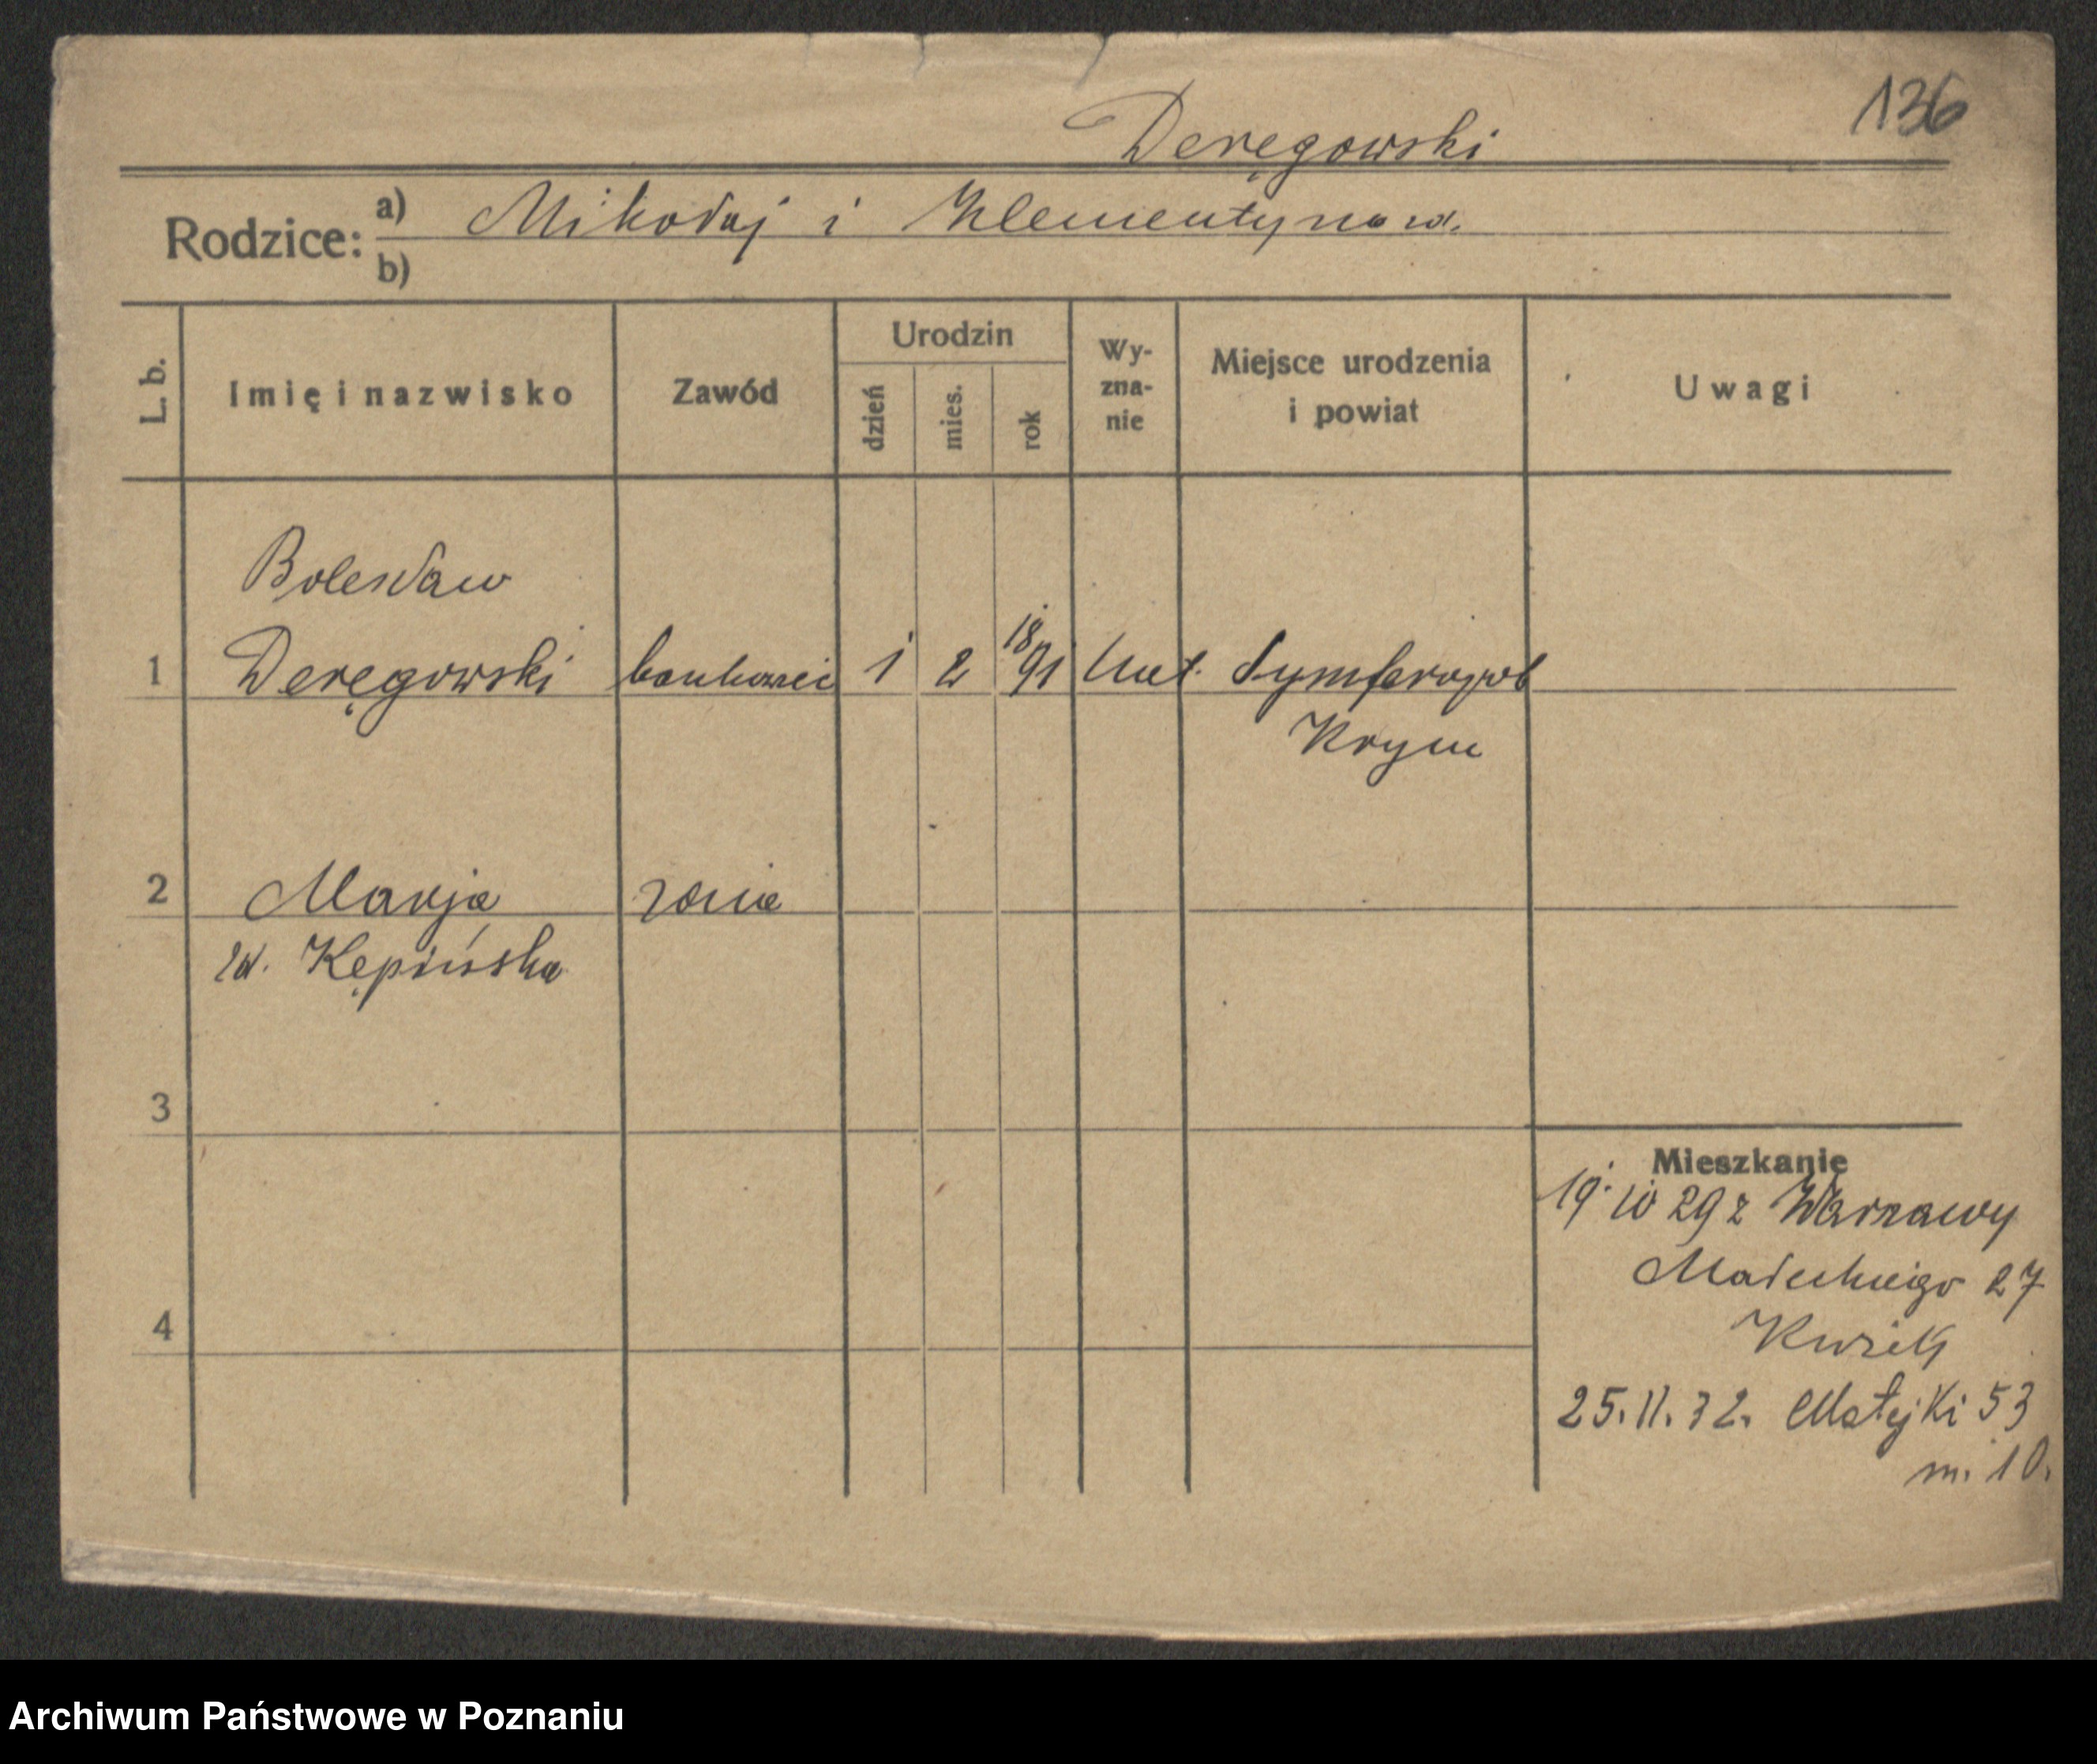 136
Deręgowski
Rodzice: a) Mikołaj i Klementyna
b)
L. b.
Imię i nazwisko
Zawód
Urodzin
dzień
mies.
rok
Wy-
zna-
nie
Miejsce urodzenia
i powiat
Uwagi
Bolesław
1 Deręgowski bankowiec 1 2 18/91 Symferopol
Krym
2 Marja żona
zd. Kępińska
3
4
Mieszkanie
19. 10 29 z Warszawy
Małeckiego 27
25. 11. 32. Matejki 53
m. 10.
Archiwum Państwowe w Poznaniu